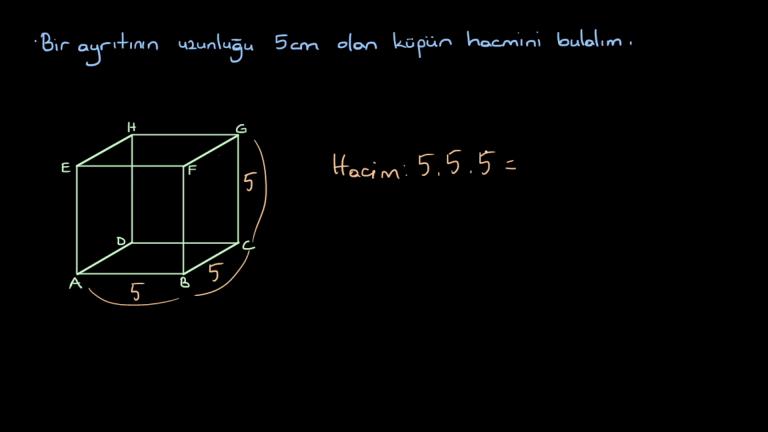 · Bir ayrıtının uzunluğu 5cm olan küpün hacmini bulalım.
H
G
E
F
Hacim: 5.5.5 =
5
D
C
5
A
B
5